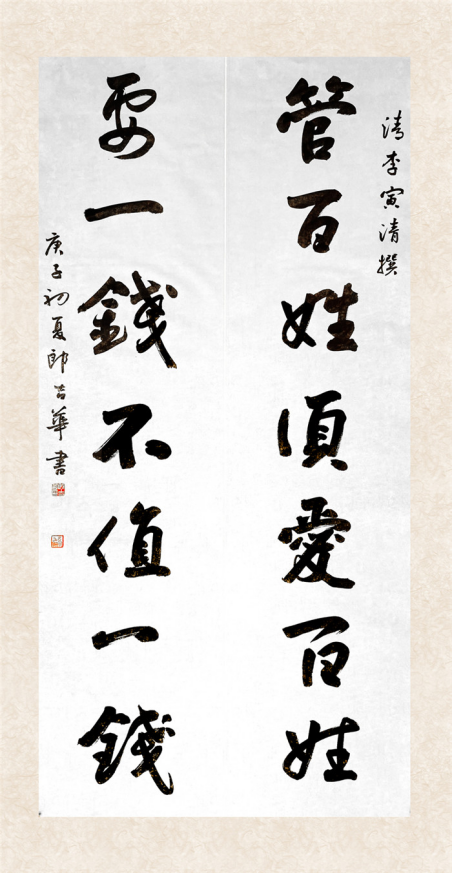 清李寅清撰
管百姓須愛百姓
要一錢不值一錢
庚子初夏郎吉華書